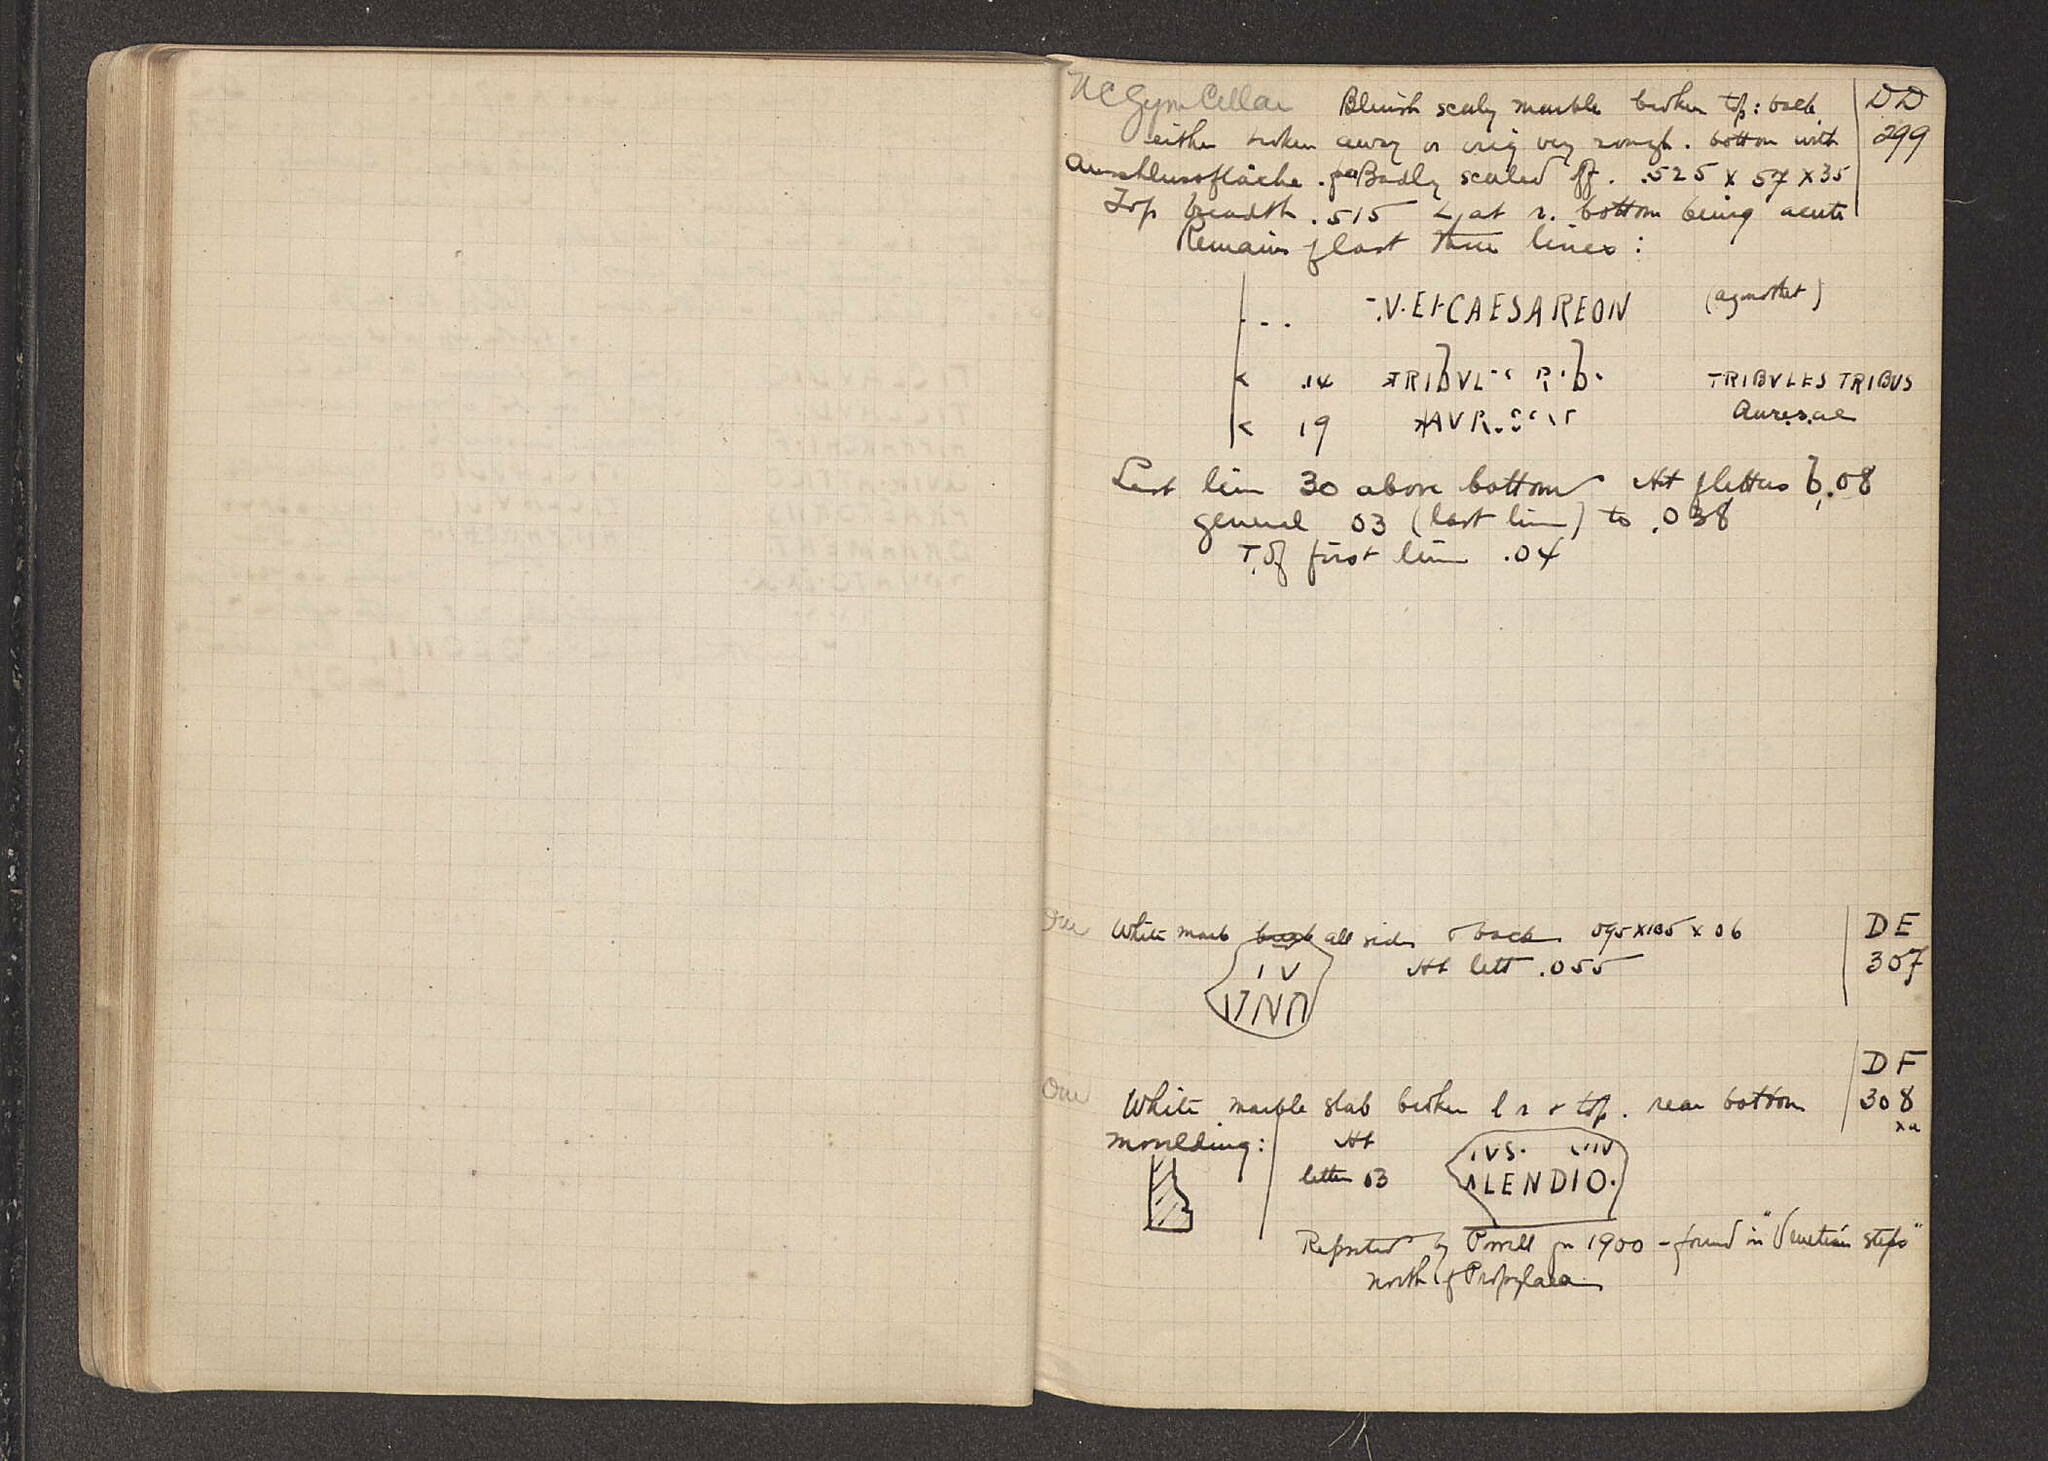 Bluish scaly marble broken top: back
DD
either broken away or orig very rough. bottom with
299
Anschlussfläche. Badly scaled off. .525 x 57 x 35
Top breadth .515 at r. bottom being acute
Remains of last three lines:
V. ET CAESAREON (agonothet)
< .14 TRIBVL TRIBVLES TRIBUS
< 19 AVR
Last line 30 above bottom Ht of letters .08
general 03 (last line) to .038
T. of first line .04
One White marb all sides & back 095 x 105 x 06
DE
307
Ht lett .055
I V
DF
One White marble slab broken l r & top. rear bottom
308
moulding: Ht
letter 03
IVS.
LENDIO.
Reported by Powell in 1900 - found in "Venetian steps"
north of Propylaea